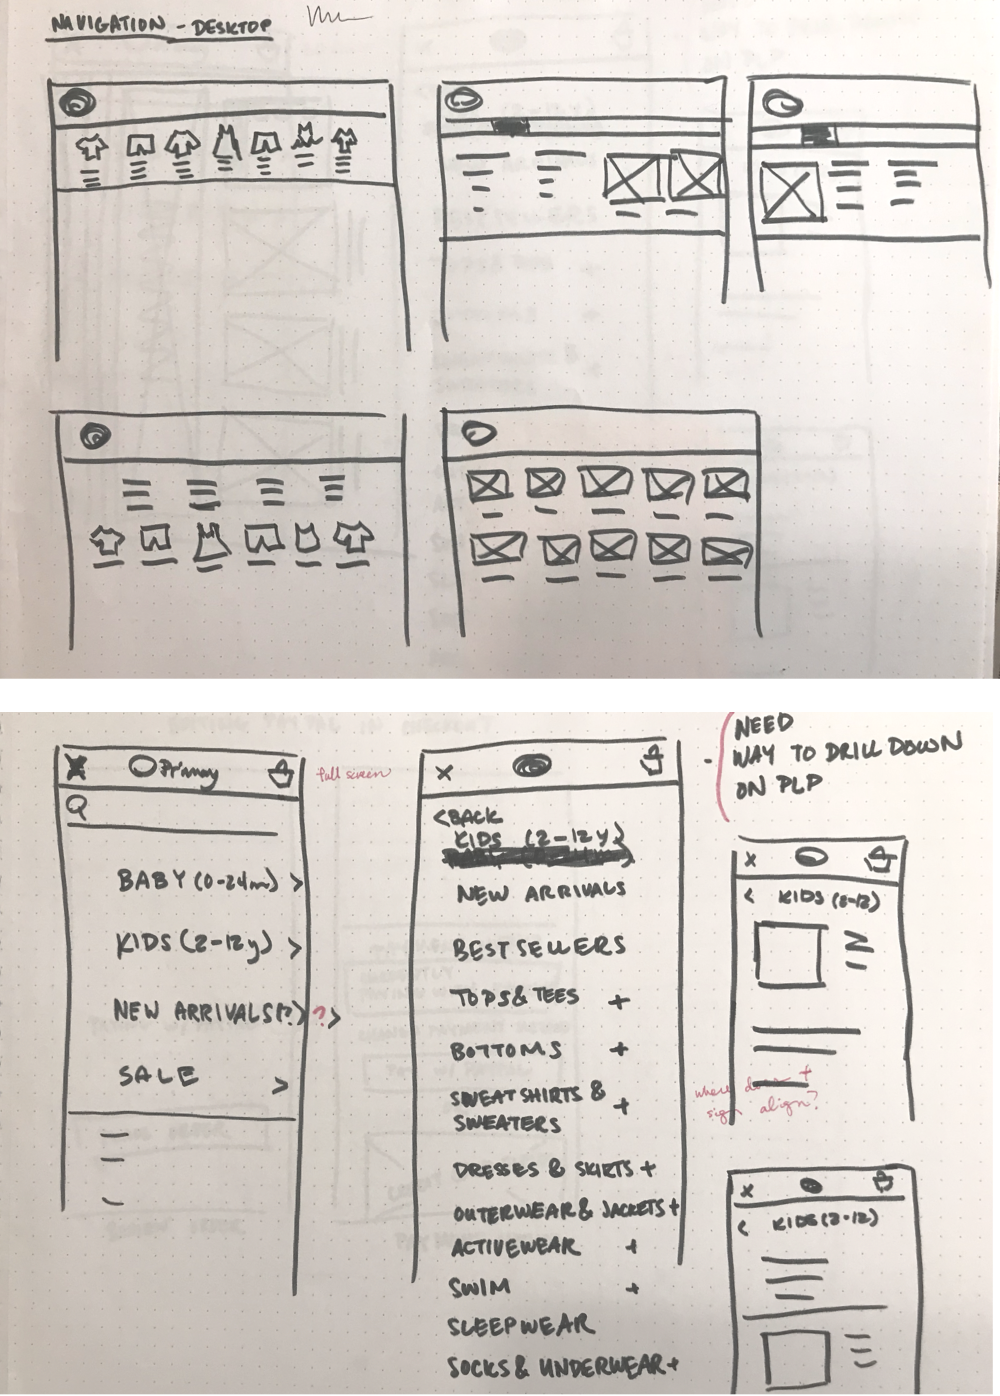 NAVIGATION - DESKTOP
X Primary
full screen
Q
BABY (0-24m) >
KIDS (2-12y) >
NEW ARRIVALS(?) ? >
SALE >
X
<BACK
KIDS (2-12y)
NEW ARRIVALS
BEST SELLERS
TOPS & TEES +
BOTTOMS +
SWEATSHIRTS & +
SWEATERS
DRESSES & SKIRTS +
OUTERWEAR & JACKETS +
ACTIVEWEAR +
SWIM +
SLEEPWEAR
SOCKS & UNDERWEAR +
NEED
- WAY TO DRILL DOWN
ON PLP
X
< KIDS (2-12)
where does +
sign align?
X
< KIDS (2-12)